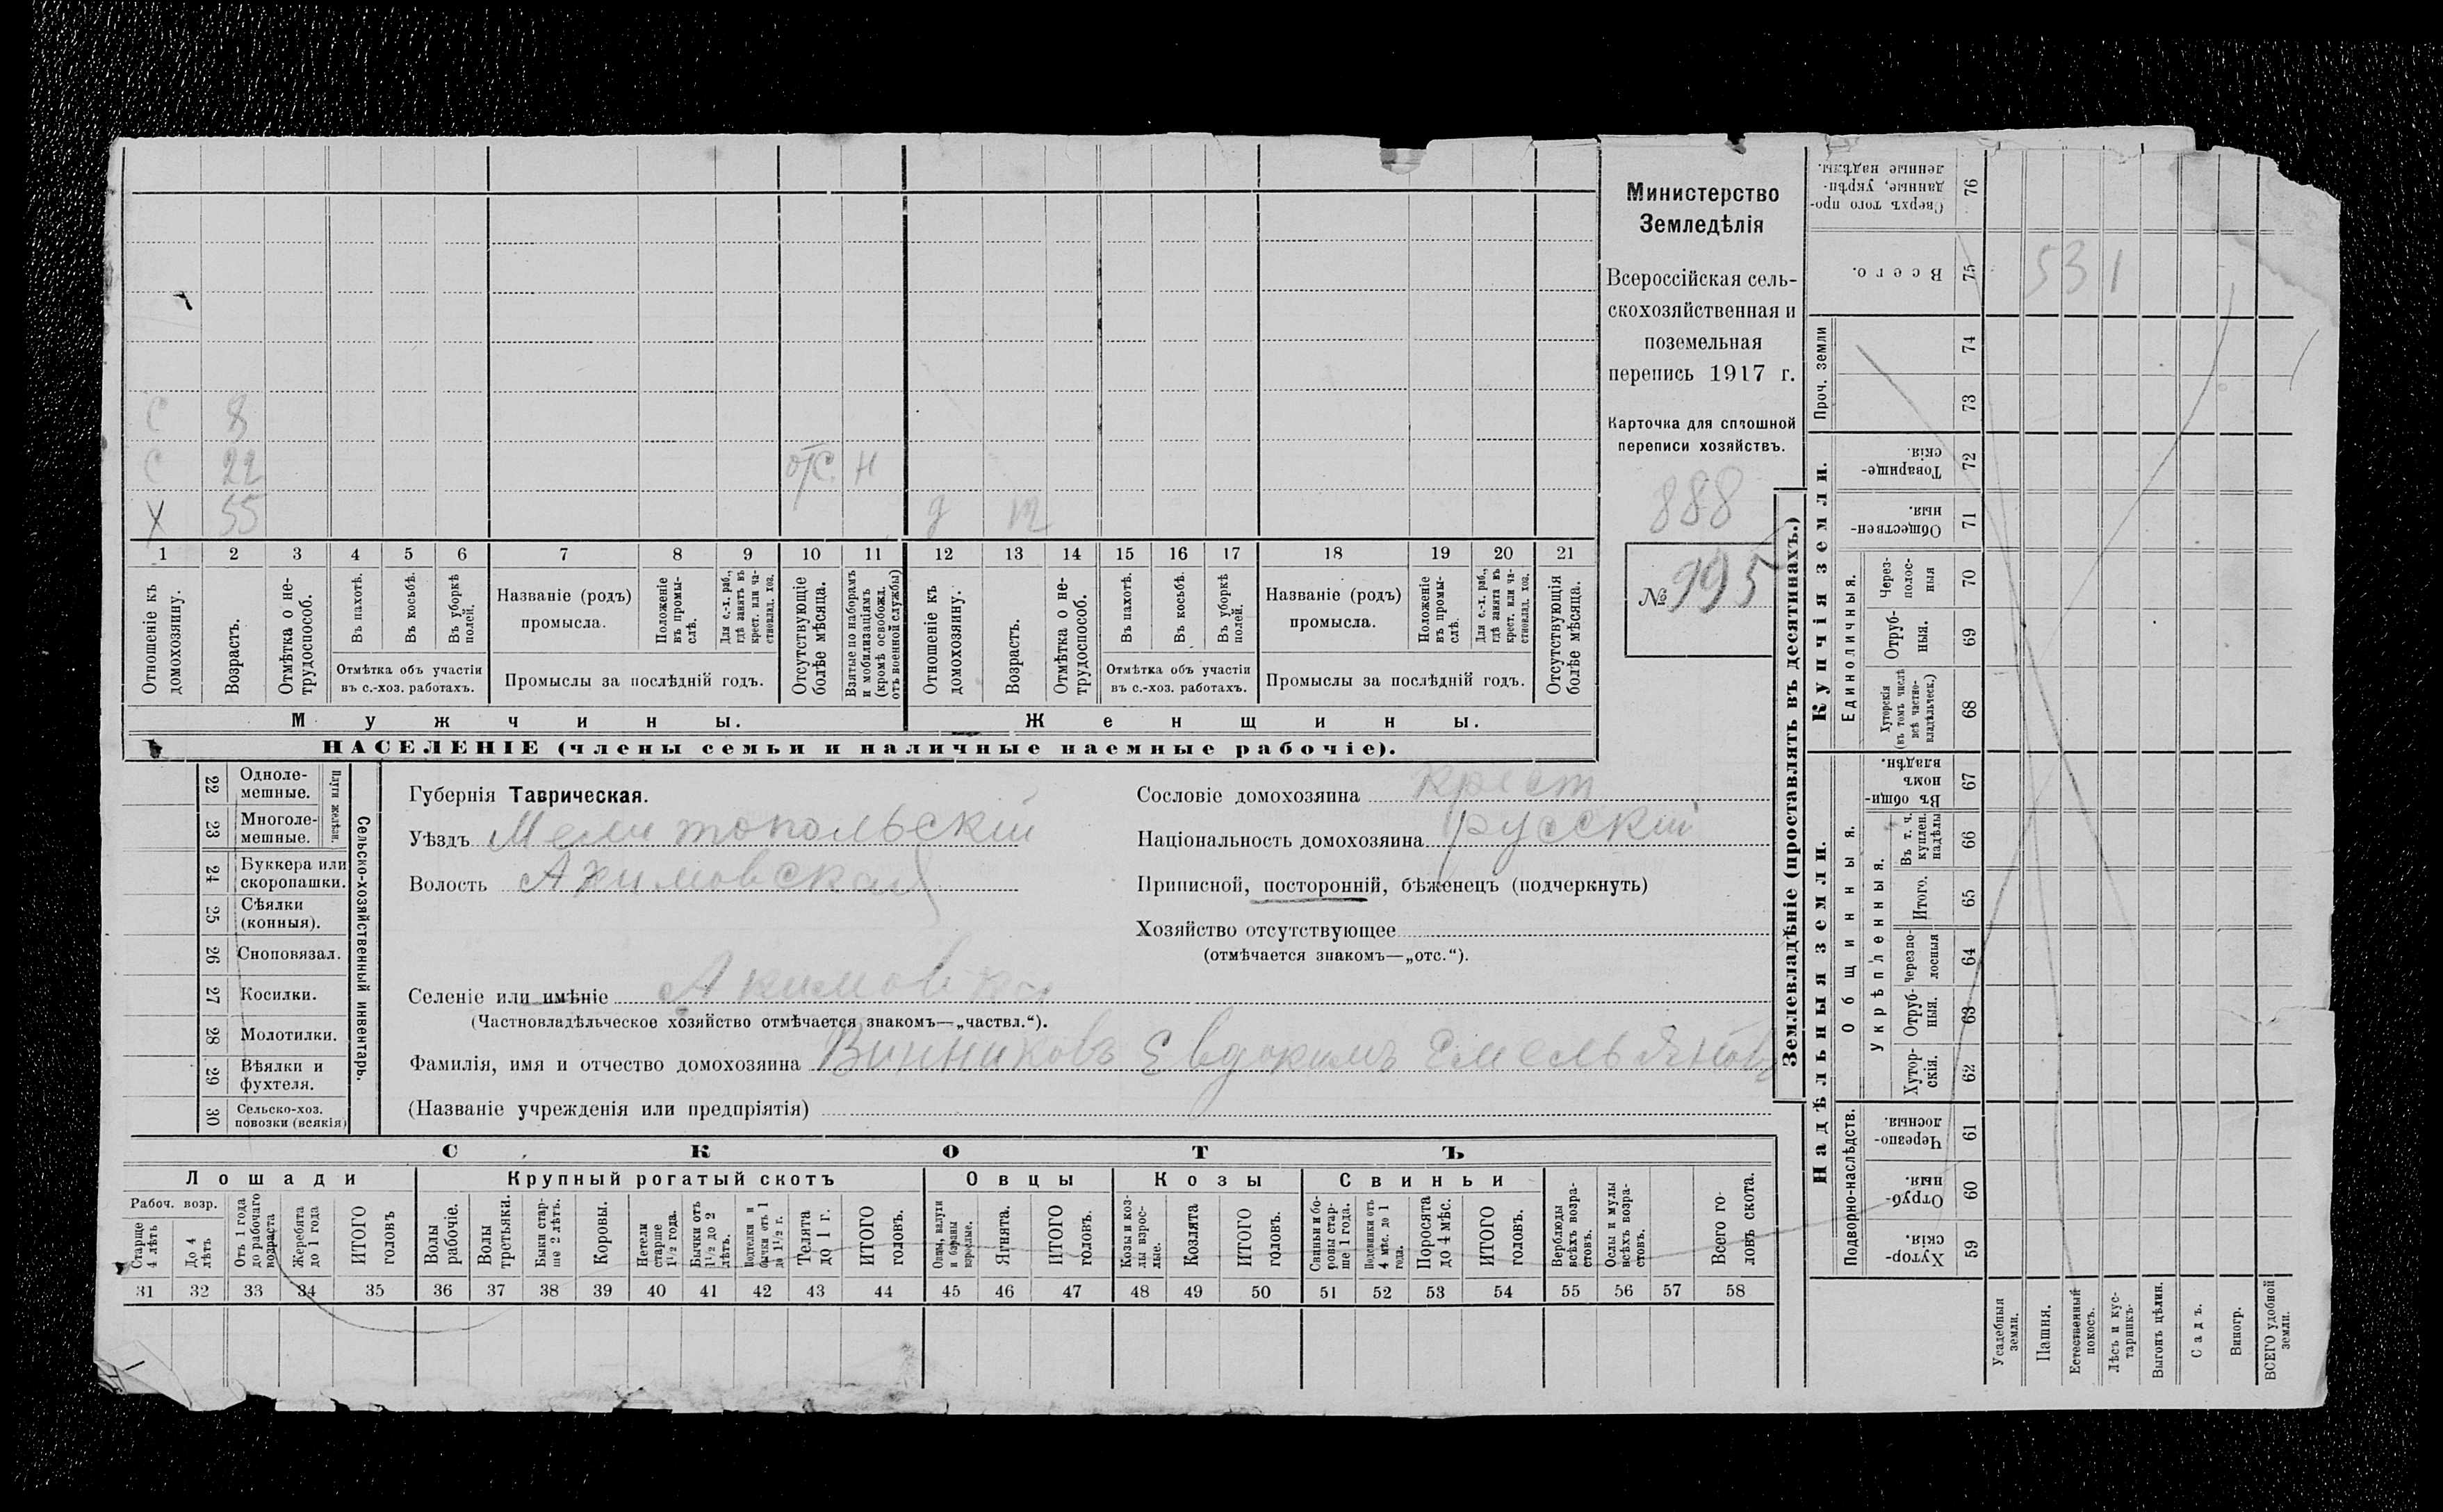 С 8
С 22 отс. Н
Х 55 д 12
1 2 3 4 5 6 7 8 9 10 11 12 13 14 15 16 17 18 19 20 21
Отношеніе къ домохозяину.
Возрастъ.
Отмѣтка о не-
трудоспособ.
Въ пахотѣ.
Въ косьбѣ.
Въ уборкѣ
полей.
Отмѣтка объ участіи
въ с.-хоз. работахъ.
Названіе (родъ)
промысла.
Положеніе
въ промы-
слѣ.
Для с.-х. раб.,
гдѣ занятъ въ
крест. или ча-
стновлад. хоз.
Промыслы за послѣдній годъ.
Отсутствующіе
болѣе мѣсяца.
Взятые по наборамъ
и мобилизаціямъ
(кромѣ освобожд.
отъ военной службы)
Отношеніе къ
домохозяину.
Возрастъ.
Отмѣтка о не-
трудоспособ.
Въ пахотѣ.
Въ косьбѣ.
Въ уборкѣ
полей.
Отмѣтка объ участіи
въ с.-хоз. работахъ.
Названіе (родъ)
промысла.
Положеніе
въ промы-
слѣ.
Для с.-х. раб.,
гдѣ занята въ
крест. или ча-
стновлад. хоз.
Промыслы за послѣдній годъ.
Отсутствующія
болѣе мѣсяца.
Мужчины. Женщины.
НАСЕЛЕНІЕ (члены семьи и наличные наемные рабочіе).
Министерство
Земледѣлія
Всероссійская сель-
скохозяйственная и
поземельная
перепись 1917 г.
Карточка для сплошной
переписи хозяйствъ.
888
№ 195
22 Одноле-
мешные.
23 Многоле-
мешные.
Плуги желѣзн.
24 Буккера или
скоропашки.
25 Сѣялки
(конныя).
26 Сноповязал.
27 Косилки.
28 Молотилки.
29 Вѣялки и
фухтеля.
30 Сельско-хоз.
повозки (всякія)
Сельско-хозяйственный инвентарь.
Губернія Таврическая.
Уѣздъ Мелитопольскій
Волость Акимовская
Сословіе домохозяина крест
Національность домохозяина русскій
Приписной, посторонній, бѣженецъ (подчеркнуть)
Хозяйство отсутствующее
(отмѣчается знакомъ—„отс.“).
Селеніе или имѣніе Акимовка
(Частновладѣльческое хозяйство отмѣчается знакомъ—„частвл.“).
Фамилія, имя и отчество домохозяина Винниковъ Евдокимъ Емельянов
(Названіе учрежденія или предпріятія)
СКОТЪ
Лошади Крупный рогатый скотъ Овцы Козы Свиньи
Рабоч. возр.
Старше
4 лѣтъ
До 4
лѣтъ
Отъ 1 года
до рабочаго
возраста
Жеребята
до 1 года
ИТОГО
головъ
Волы
рабочіе.
Волы
третьяки.
Быки стар-
ше 2 лѣтъ.
Коровы.
Нетели
старше
1½ года.
Бычки отъ
1½ до 2
лѣтъ.
Подтелки и
бычки отъ 1
до 1½ г.
Телята
до 1 г.
ИТОГО
головъ.
Овцы, валухи
и бараны
взрослые.
Ягнята.
ИТОГО
головъ.
Козы и коз-
лы взрос-
лые.
Козлята
ИТОГО
головъ.
Свиньи и бо-
ровы стар-
ше 1 года.
Подсвинки отъ
4 мѣс. до 1
года.
Поросята
до 4 мѣс.
ИТОГО
головъ.
Верблюды
всѣхъ возра-
стовъ.
Ослы и мулы
всѣхъ возра-
стовъ.
Всего го-
ловъ скота.
31 32 33 34 35 36 37 38 39 40 41 42 43 44 45 46 47 48 49 50 51 52 53 54 55 56 57 58
Землевладѣніе (проставлять въ десятинахъ.)
Надѣльныя земли. Купчія земли.
Проч. земли
Подворно-наслѣдств.
Общинныя.
Укрѣпленныя.
Единоличныя.
Сверхъ того про-
данные, укрѣп-
ленные надѣлы. 76
Всего. 75 53 1
74
73
Товарище-
скія 72
Обществен-
ныя. 71
Через-
полос-
ныя 70
Отруб-
ныя. 69
Хуторскія
(въ томъ числѣ
всѣ частно-
владѣльческ.) 68
Въ общин-
номъ
владѣн. 67
Въ т. ч.
куплен.
надѣлы 66
Итого. 65
Черезпо-
лосныя 64
Отруб-
ныя. 63
Хутор-
скія. 62
Черезпо-
лосныя 61
Отруб-
ныя. 60
Хутор-
скія. 59
Усадебныя
земли.
Пашня.
Естественный
покосъ.
Лѣсъ и кус-
тарникъ.
Выгонъ цѣлин.
Садъ.
Виногр.
ВСЕГО удобной
земли.